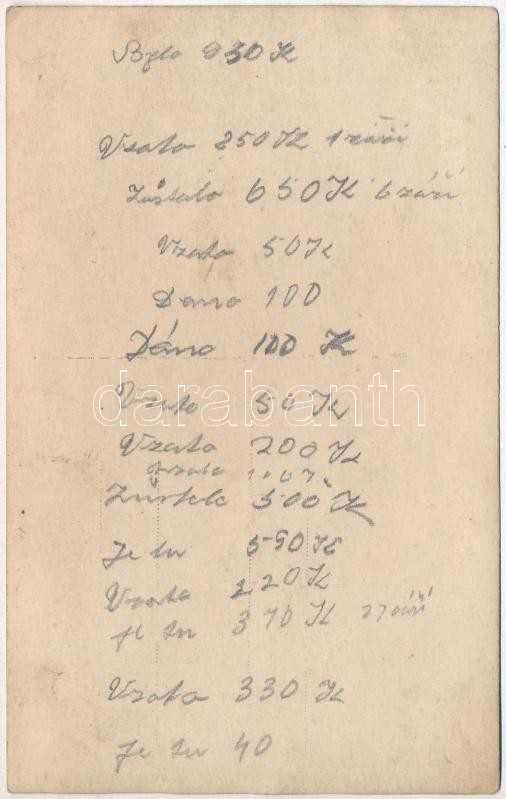 Bylo 930 K
Vzato 250 K 1 září
Zůstalo 650 K 6 září
Vzato 50 K
Dano 100
Dáno 100 K
Vzato 50 K
Vzato 200 K
Vzato
Zůstatek 500 K
Je tu 590 K
Vzato 220 K
Je tu 370 K 27 září
Vzato 330 K
Je tu 40
darabanth